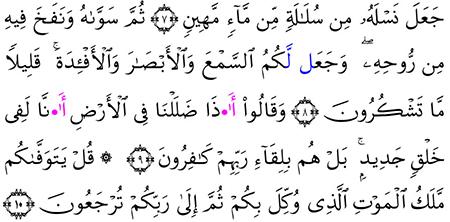 جَعَلَ نَسْلَهُۥ مِن سُلَـٰلَةٍ مِّن مَّآءٍ مَّهِينٍ ﴿٧﴾ ثُمَّ سَوَّىٰهُ وَنَفَخَ فِيهِ
مِن رُّوحِهِۦ ۖ وَجَعَل لَّكُمُ السَّمْعَ وَالْأَبْصَـٰرَ وَالْأَفْـِٔدَةَ ۚ قَلِيلًا
مَّا تَشْكُرُونَ ﴿٨﴾ وَقَالُوا۟ أَ•ذَا ضَلَلْنَا فِى الْأَرْضِ أَ•نَّا لَفِى
خَلْقٍ جَدِيدٍۭ ۚ بَلْ هُم بِلِقَآءِ رَبِّهِمْ كَـٰفِرُونَ ﴿٩﴾ ۞ قُلْ يَتَوَفَّىٰكُم
مَّلَكُ الْمَوْتِ الَّذِى وُكِّلَ بِكُمْ ثُمَّ إِلَىٰ رَبِّكُمْ تُرْجَعُونَ ﴿١٠﴾